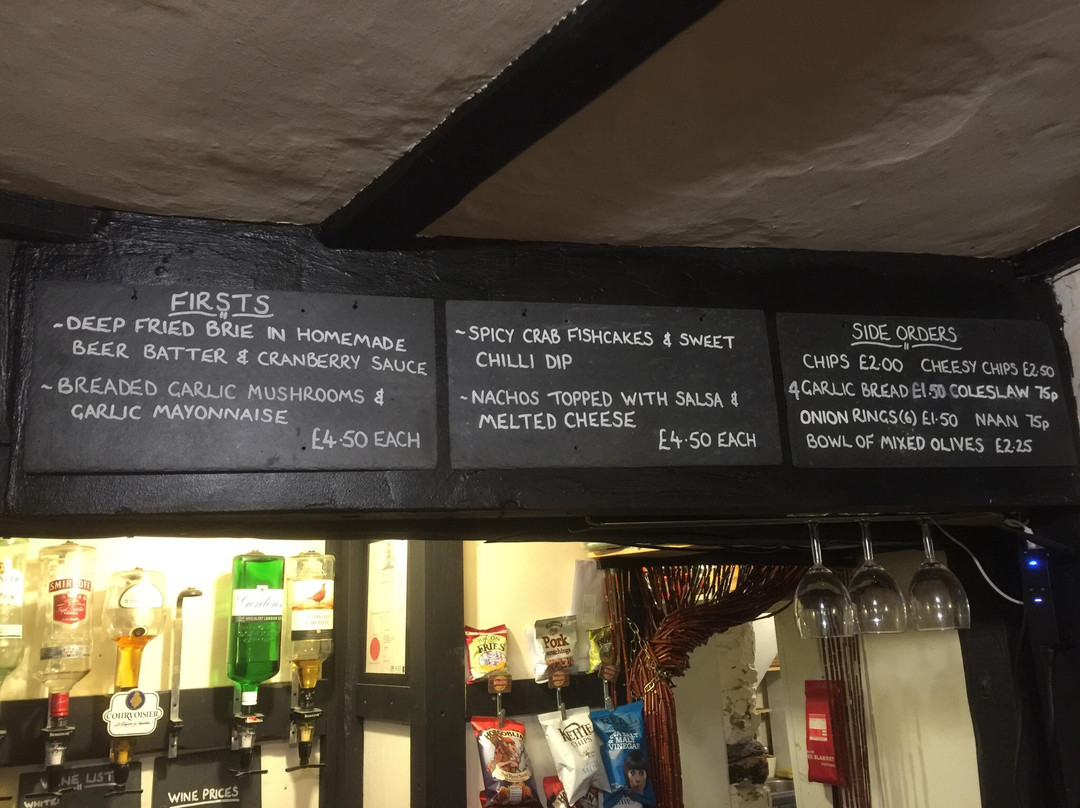 FIRSTS
~DEEP FRIED BRIE IN HOMEMADE
BEER BATTER & CRANBERRY SAUCE
~BREADED GARLIC MUSHROOMS &
GARLIC MAYONNAISE
£4.50 EACH
~SPICY CRAB FISHCAKES & SWEET
CHILLI DIP
~NACHOS TOPPED WITH SALSA &
MELTED CHEESE
£4.50 EACH
SIDE ORDERS
CHIPS £2.00 CHEESY CHIPS £2.50
4 GARLIC BREAD £1.50 COLESLAW 75p
ONION RINGS(6) £1.50 NAAN 75p
BOWL OF MIXED OLIVES £2.25
SMIRNOFF
Gordon's
COURVOISIER
WINE LIST
WHITE
WINE PRICES
BACON
FRIES
Pork
Scratchings
KETTLE
CHIPS
SALT
& MALT
VINEGAR
FIRE BLANKET